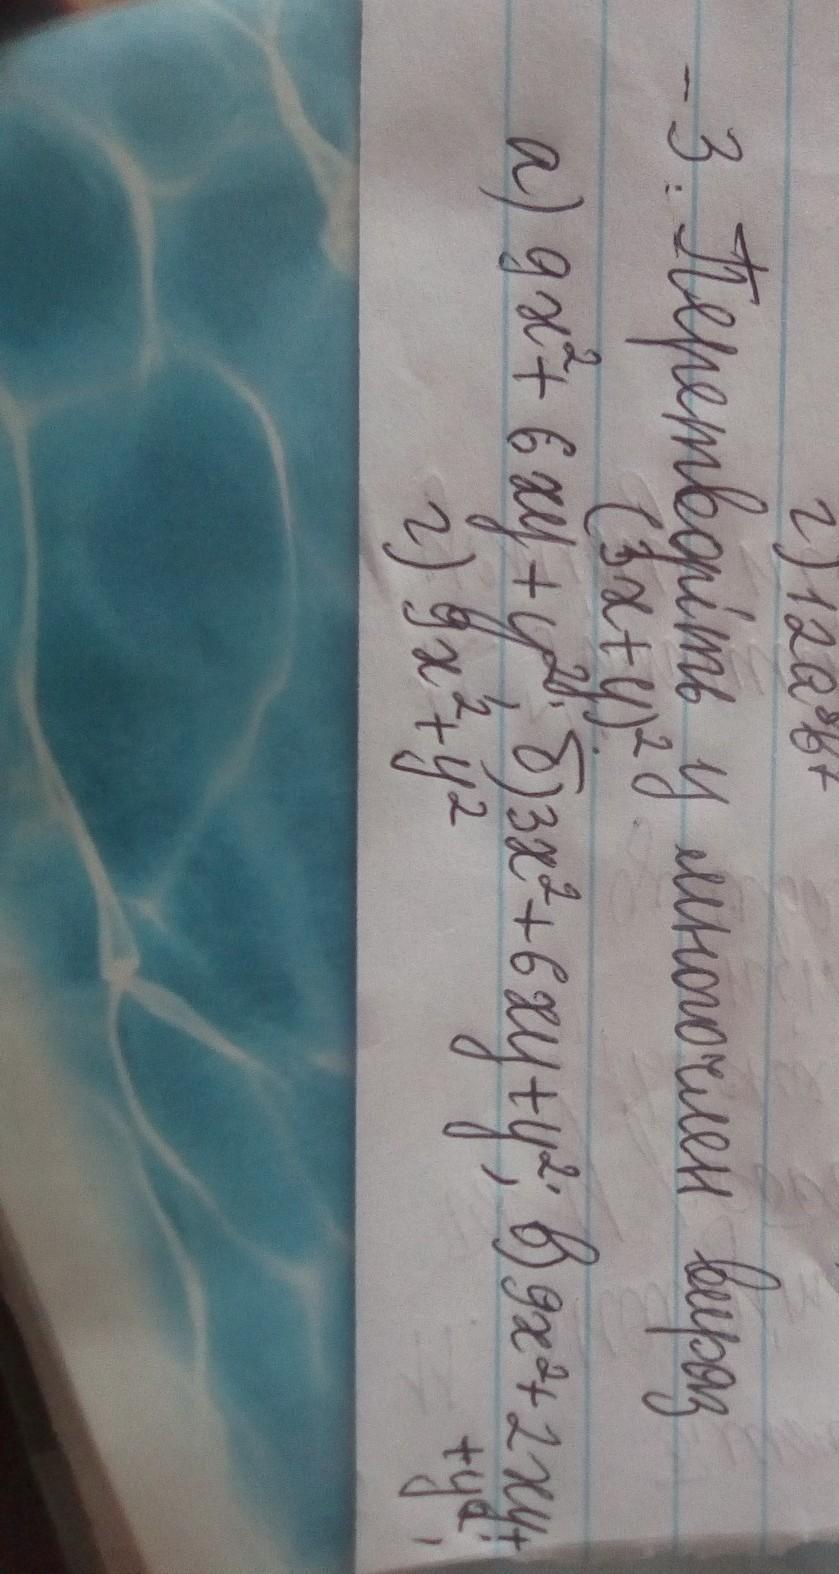 г) 12a³b+
- 3. Перетворіть у многочлен вираз
(3x+y)²
а) 9x²+ 6xy+y²; б) 3x²+6xy+y²; в) 9x²+2xy+
+y²;
г) 9x²+y²